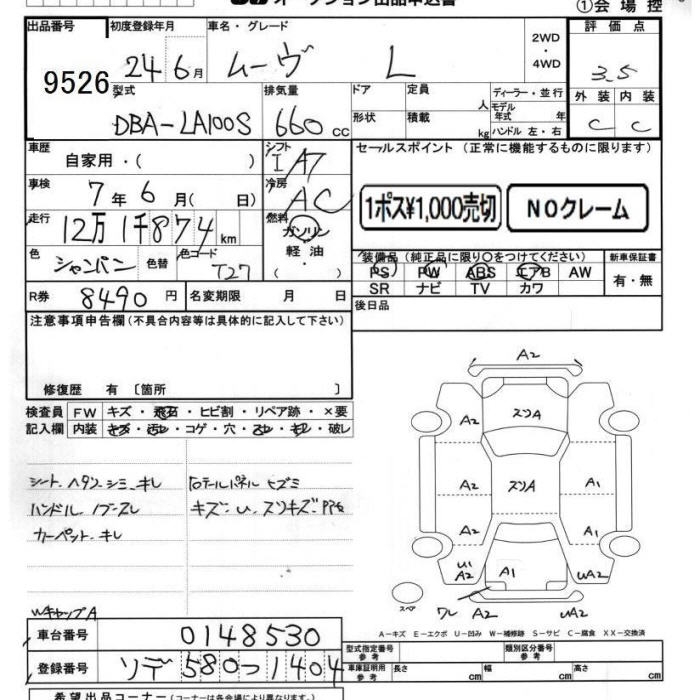 オークション出品申込書
①会場控
出品番号 初度登録年月 車名・グレード 評価点
9526 24 6月 ムーヴ L 2WD・4WD 3.5
型式 排気量 ドア 定員 人 ディーラー・並行 外装 内装
DBA-LA100S 660cc 形状 積載 kg モデル年式 年 ハンドル 左・右 C C
車歴 自家用・( ) シフト IA7 セールスポイント (正常に機能するものに限ります)
車検 7年6月( 日) 冷房 AC
1ポス¥1,000売切 NOクレーム
走行 12万1千874km 燃料 ガソリン
軽油・( )
色 シャンパン 色替 色コード T27
装備品 (純正品に限り○をつけてください) 新車保証書
PS PW ABS エアB AW 有・無
SR ナビ TV カワ
R券 8490円 名変期限 月 日 後日品
注意事項申告欄(不具合内容等は具体的に記入して下さい)
修復歴 有〔箇所 〕
検査員 FW キズ・飛石・ヒビ割・リペア跡・×要
記入欄 内装 キズ・汚レ・コゲ・穴・スレ・キレ・破レ
シート ヘタリ シミ キレ
ハンドル
カーペット キレ
テールパネル ヒズミ
キズ・U
WキャップA
A2
A2 スリA
スリA A1
A2 A1
U1 A2 A1 UA2
スペア ワレ A2 UA2
A-キズ E-エクボ U-凹み W-補修跡 S-サビ C-腐食 XX-交換済
車台番号 0148530
登録番号 ソデ580つ1404
型式指定番号 参考 類別区分番号 参考
車庫証明用 参考 長さ cm 幅 cm 高さ cm
希望出品コーナー(コーナーは各会場により異なります。)